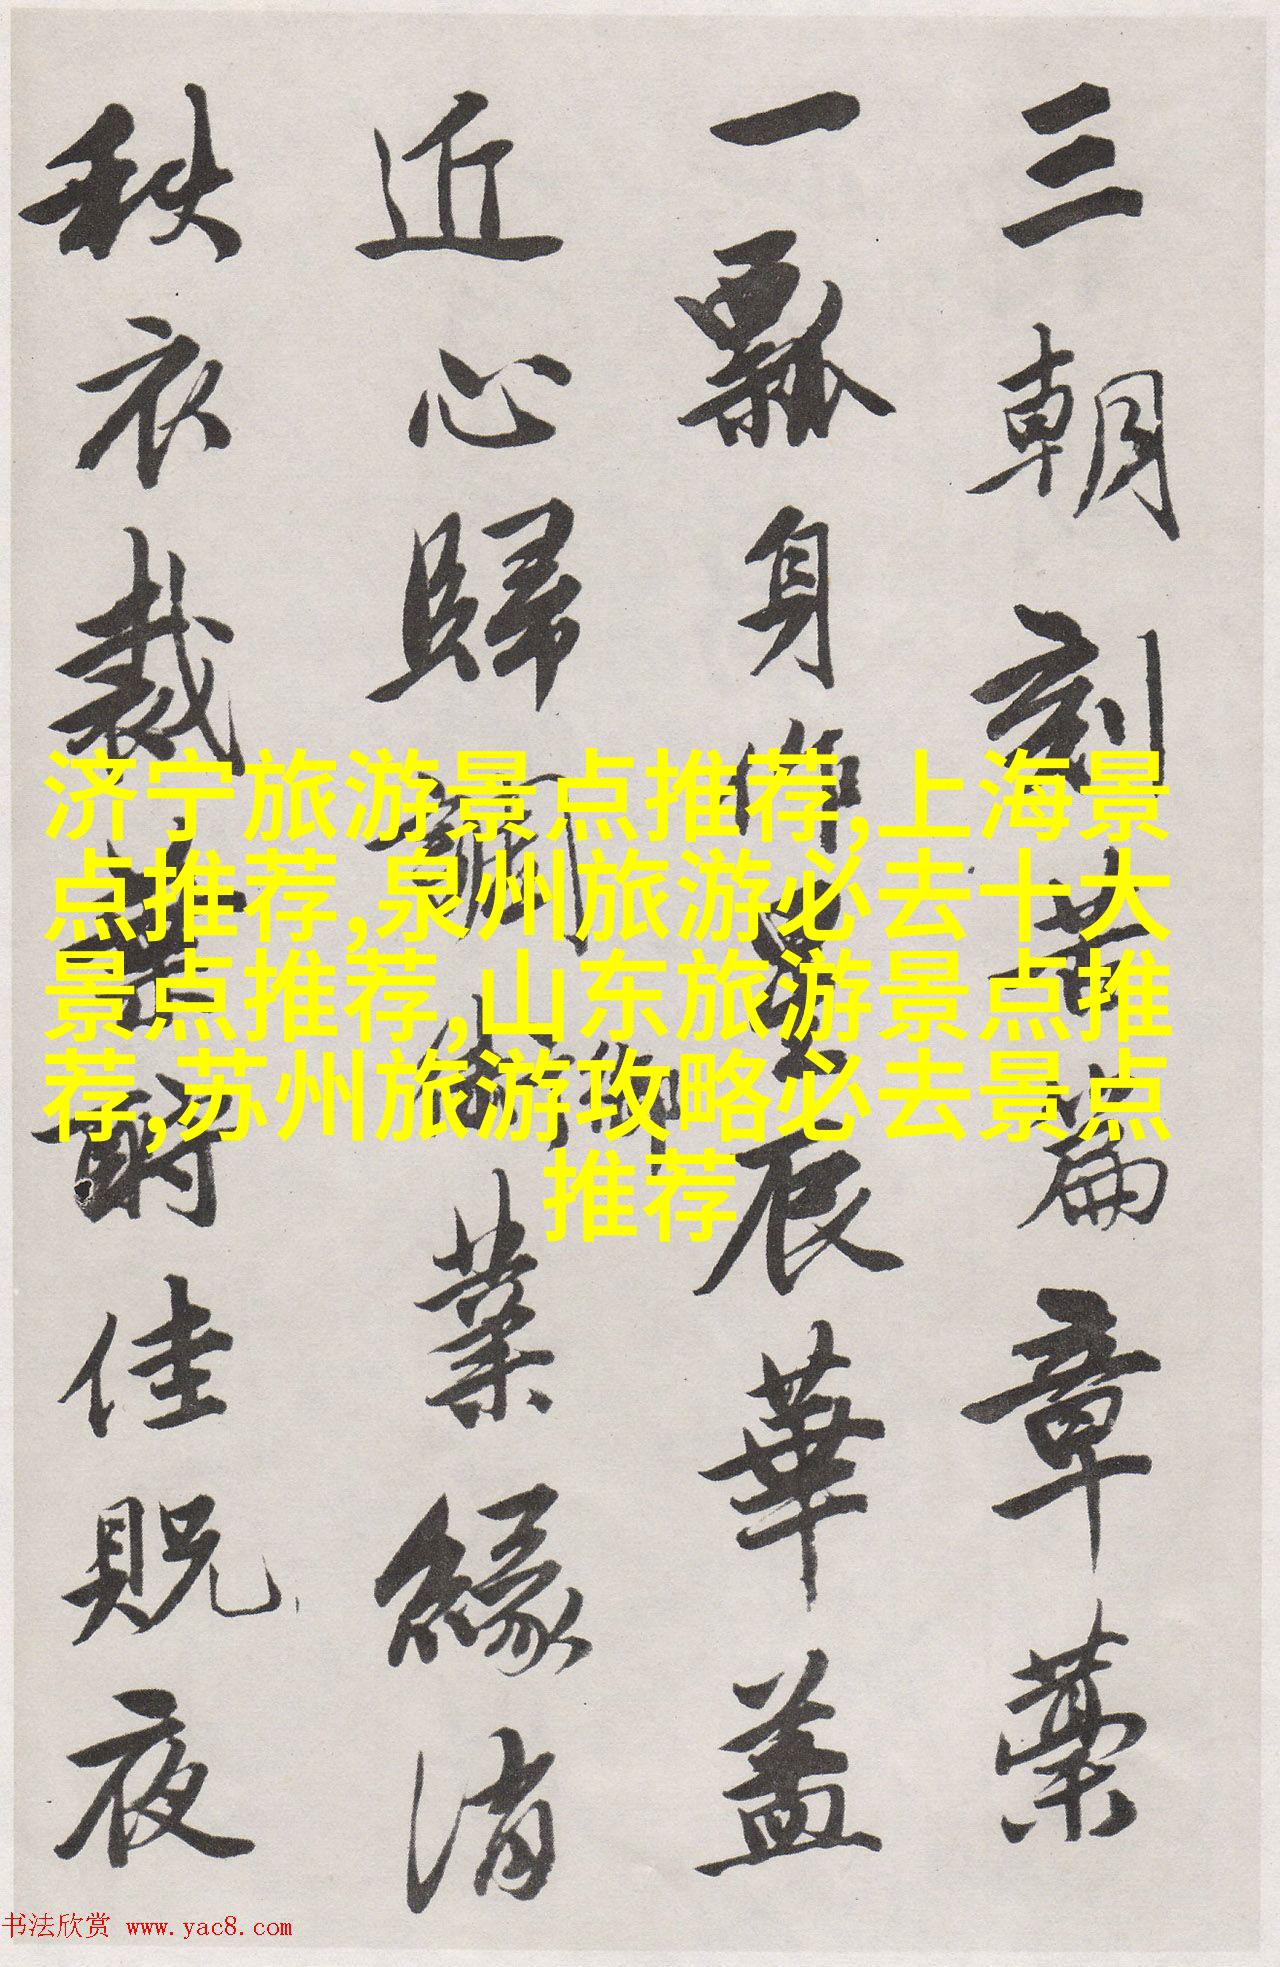 三朝刻篇章藁
一瓢身星辰華蓋
近心歸業緣消
秋衣裁佳貺夜
济宁旅游景点推荐,上海景
点推荐,泉州旅游必去十大
景点推荐,山东旅游景点推
荐,苏州旅游攻略必去景点
推荐
书法欣赏 www.yac8.com